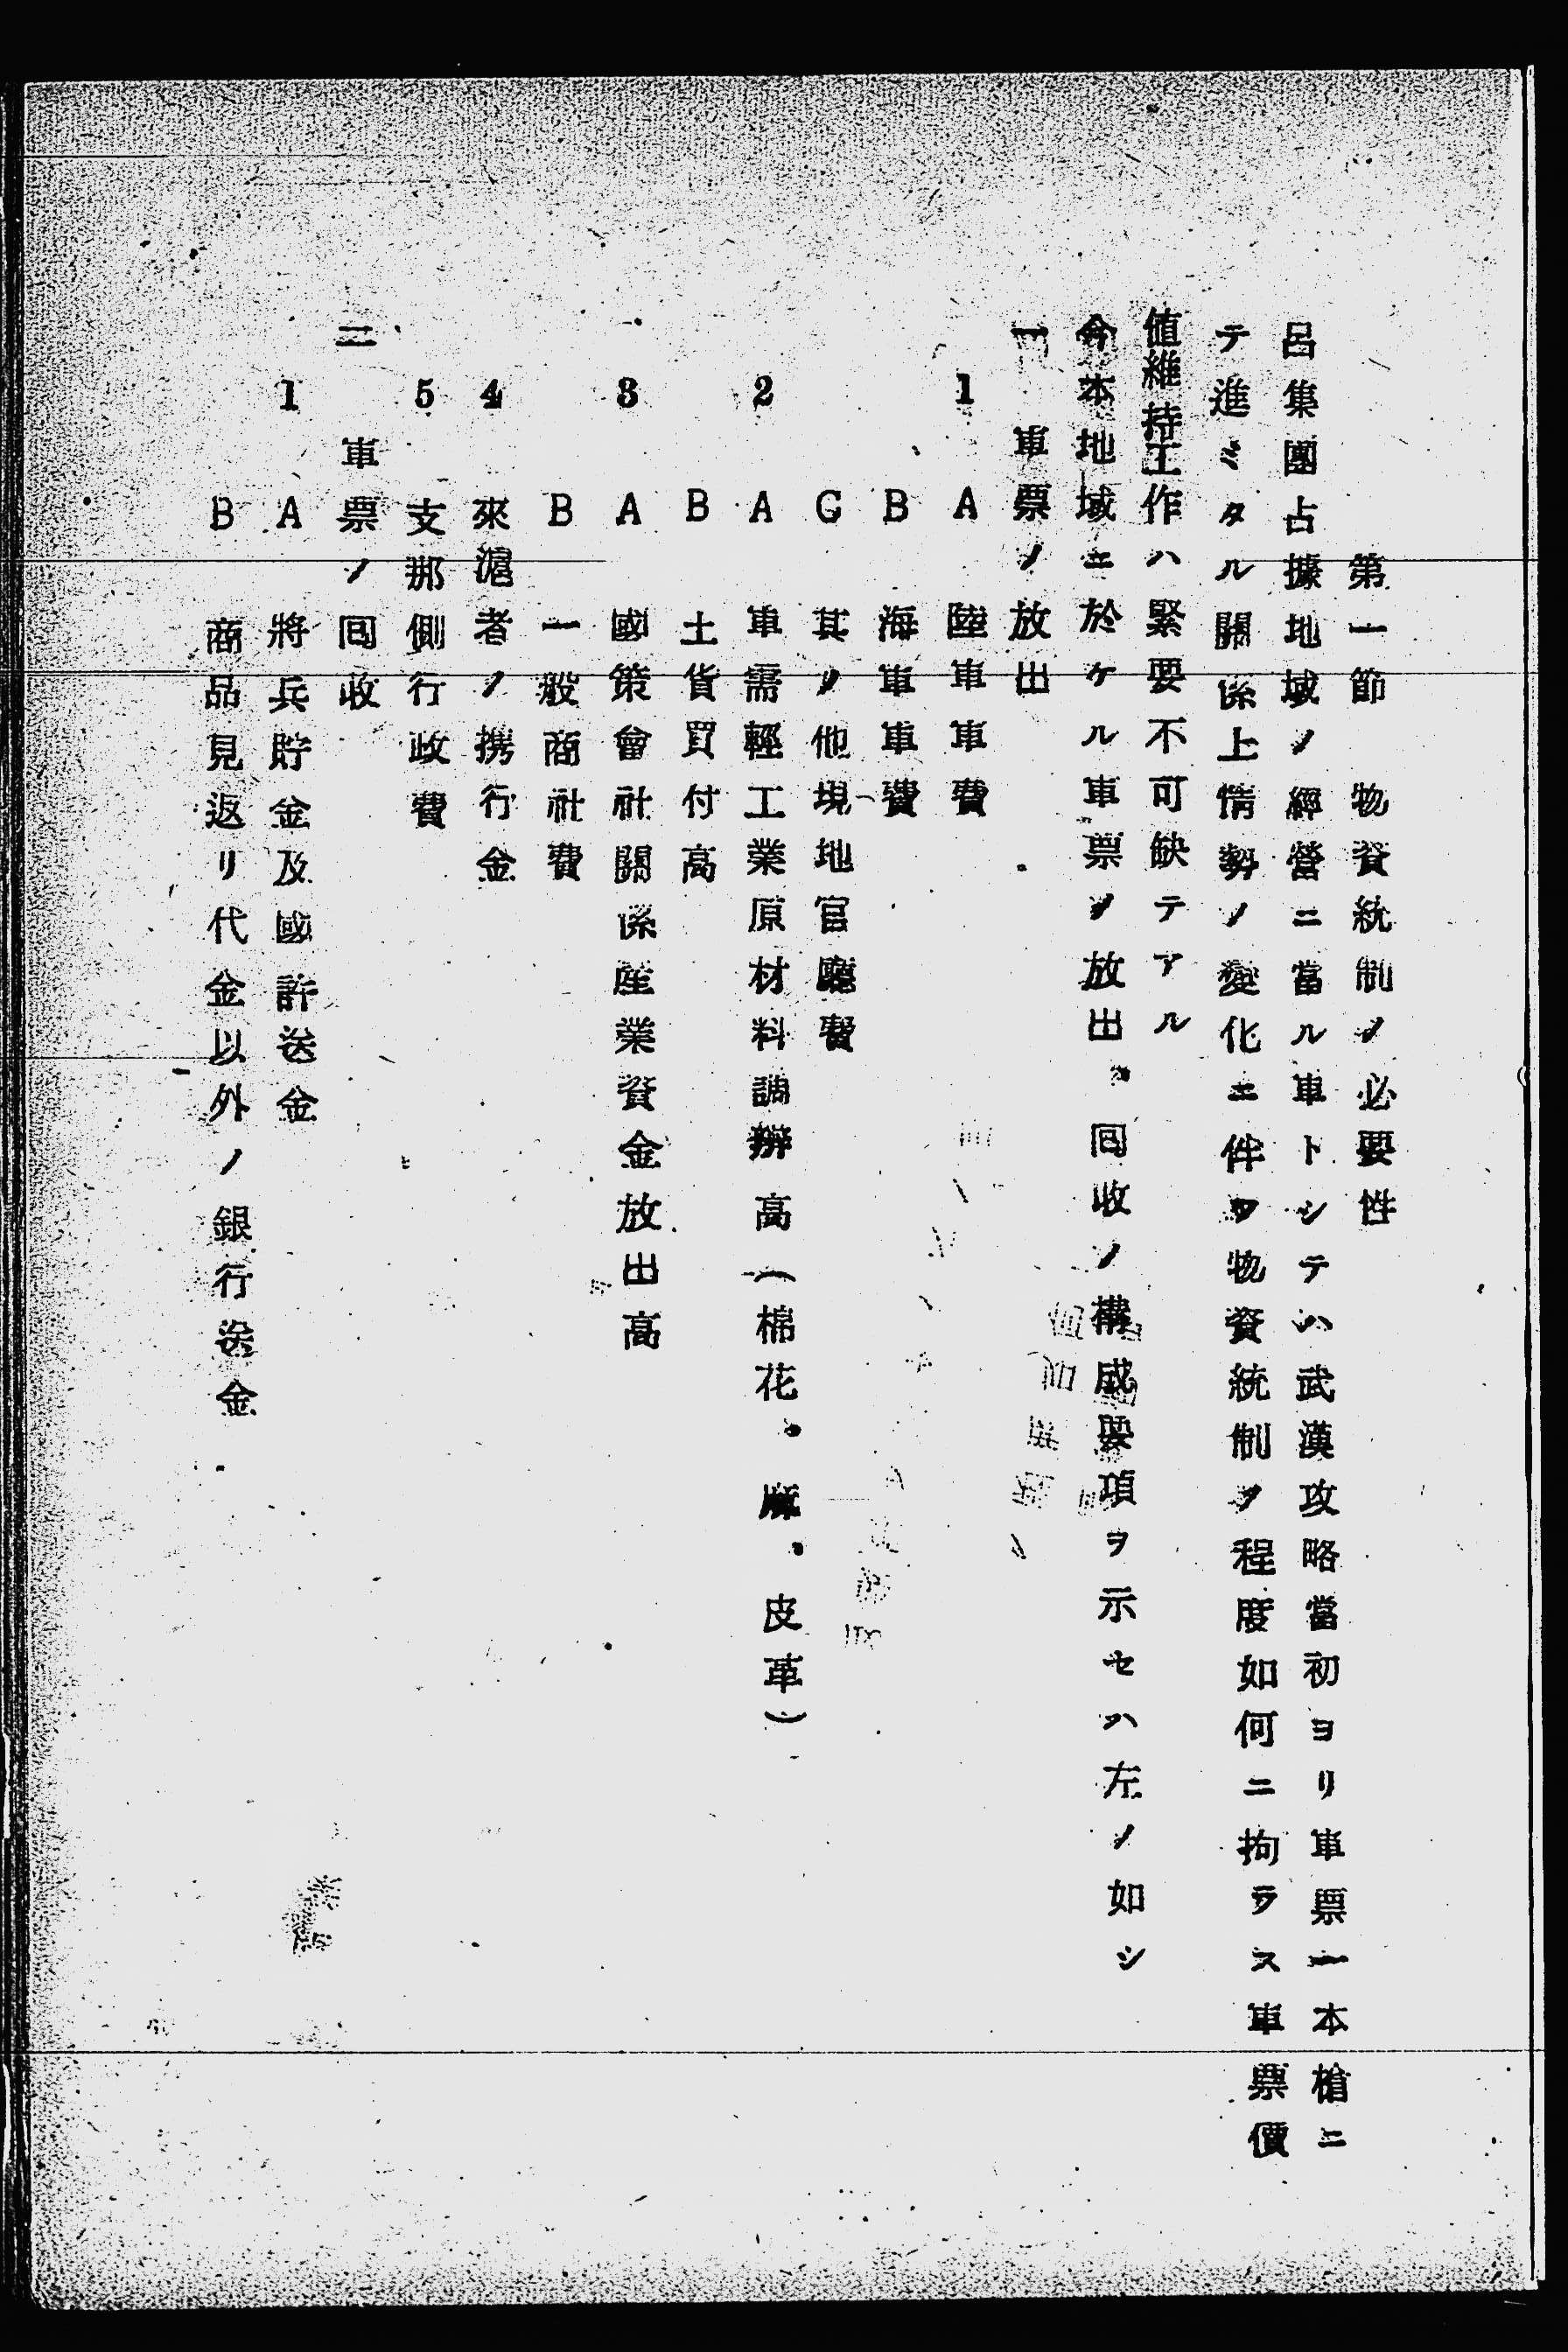 第一節　物資統制ノ必要性
呂集團占據地域ノ經營ニ當ル軍トシテハ武漢攻略當初ヨリ軍票一本槍ニ
テ進ミタル關係上情勢ノ變化ニ伴フ物資統制ノ程度如何ニ拘ラス軍票價
値維持工作ハ緊要不可缺テアル
今本地域ニ於ケル軍票ノ放出、回收ノ構成要項ヲ示セハ左ノ如シ
一　軍票ノ放出
1　A　陸軍軍費
B　海軍軍費
C　其ノ他現地官廳費
2　A　軍需輕工業原材料調辦高（棉花、麻、皮革）
B　土貨買付高
3　A　國策會社關係産業資金放出高
B　一般商社費
4　來滬者ノ携行金
5　支那側行政費
二　軍票ノ回收
1　A　將兵貯金及國許送金
B　商品見返リ代金以外ノ銀行送金